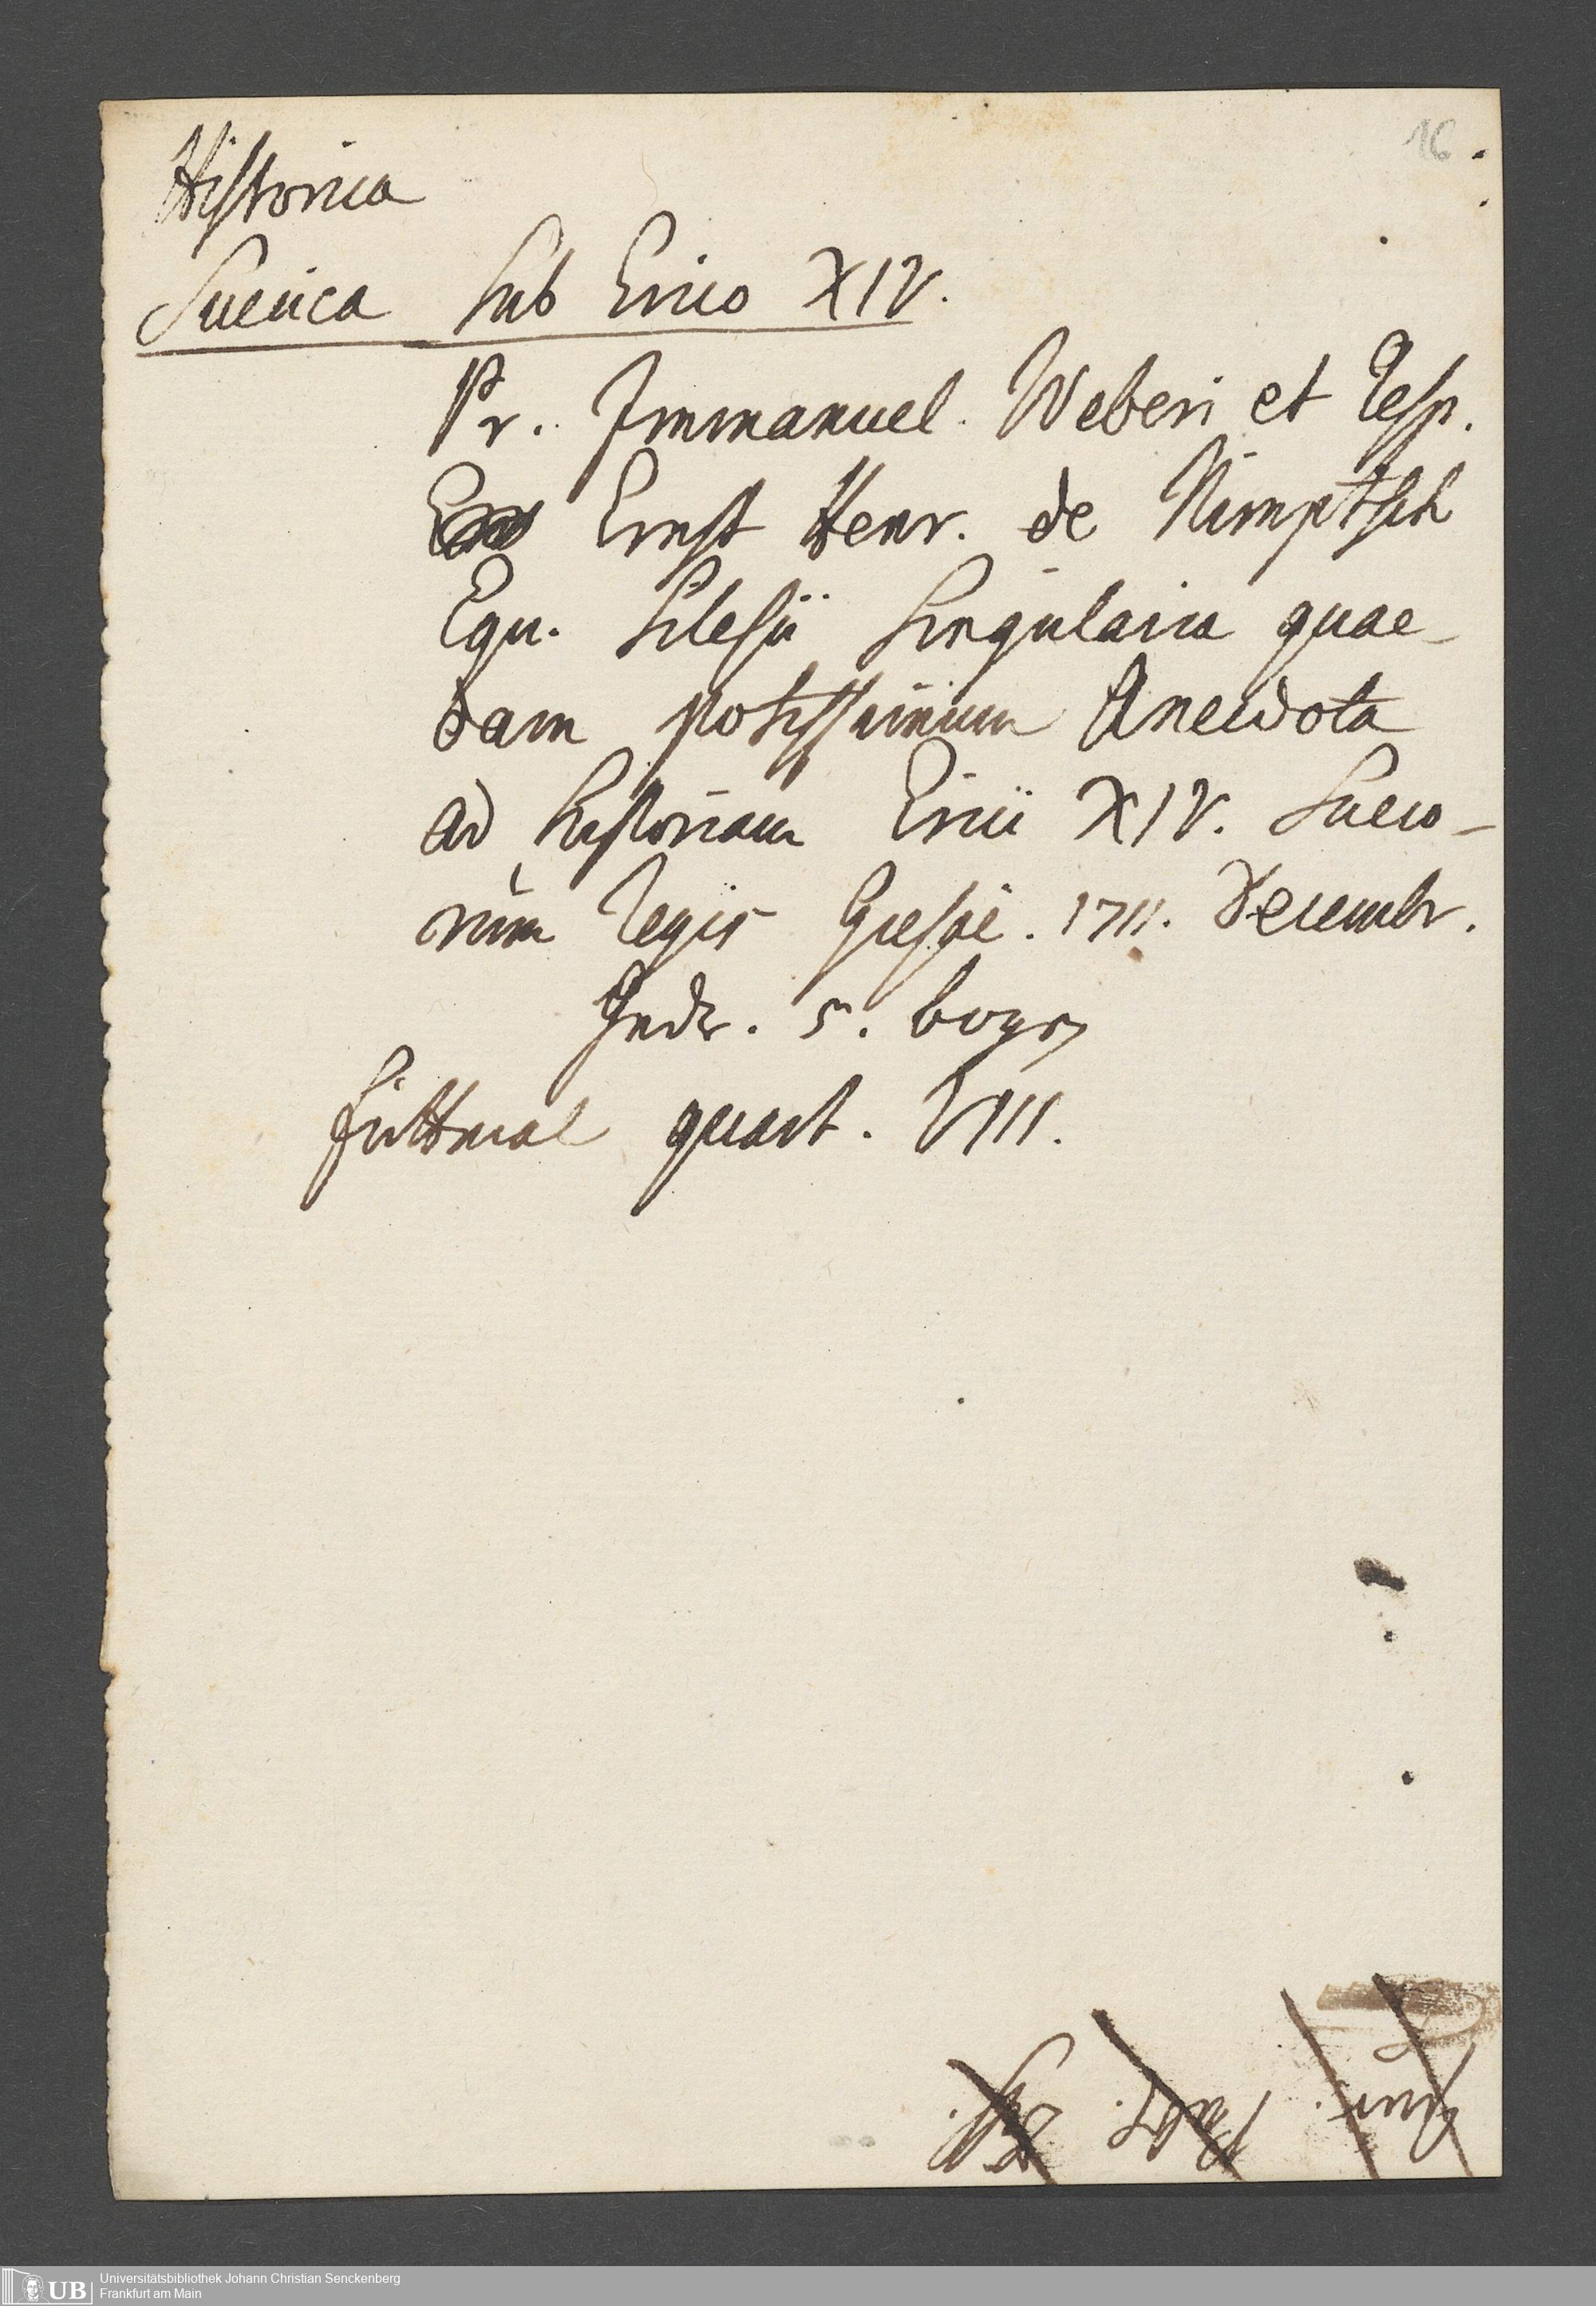 16
Historica
Suecica sub Erico XIV.
Pr. Immanuel. Weberi et Resp.
Ernst Henr. de Nimptsch
Equ. Silesii singularia quae-
dam potissimum Anecdota
ad historiam Erici XIV. Sueco-
rum regis Giessae. 1711. Decembr.
5. bogen
quart. VIII.
UB Universitätsbibliothek Johann Christian Senckenberg
Frankfurt am Main